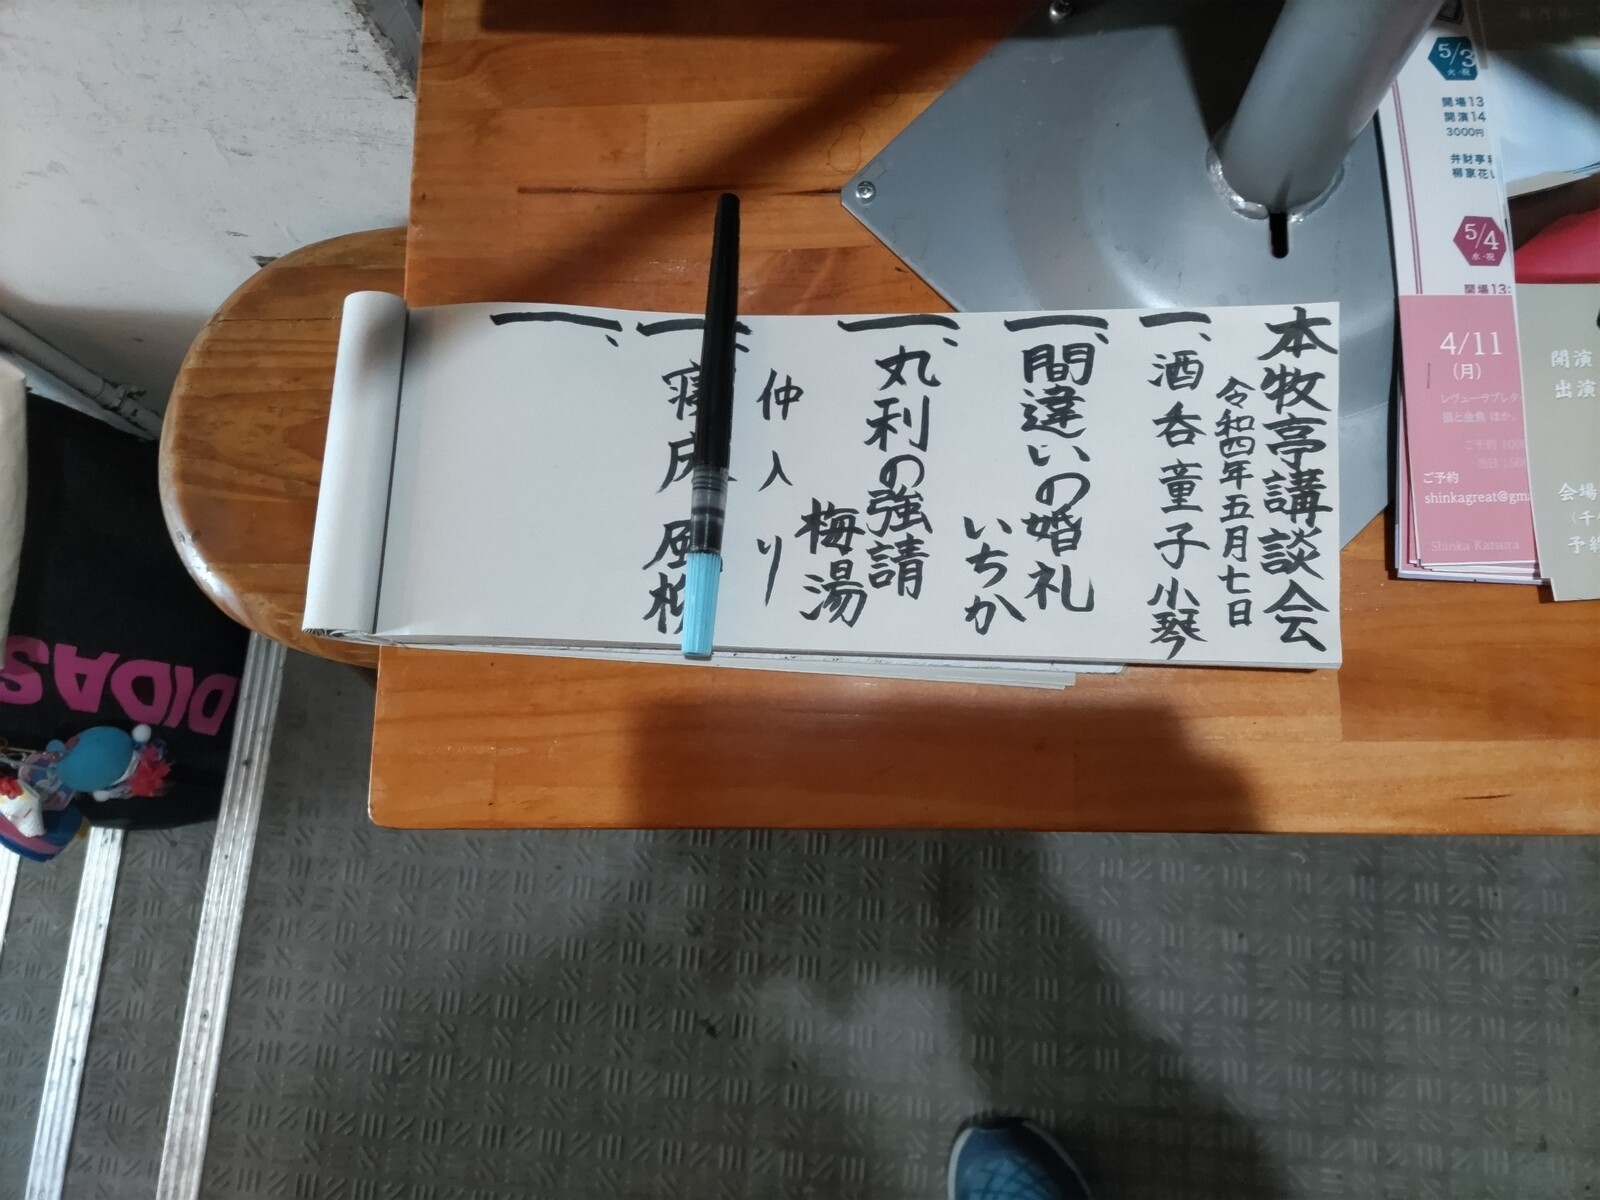 本牧亭講談会
令和四年五月七日
一、酒呑童子 小琴
一、間違いの婚礼
いちか
一、丸利の強請
梅湯
仲入り
一、寝床 風柳
一、
5/3
火・祝
開場13
開演14
3000円
弁財亭
柳家花い
5/4
水・祝
開場13:
4/11
(月)
ご予約
shinkagreat@gma
Shinka Katsura
開演
出演
会場
予約
DIDAS